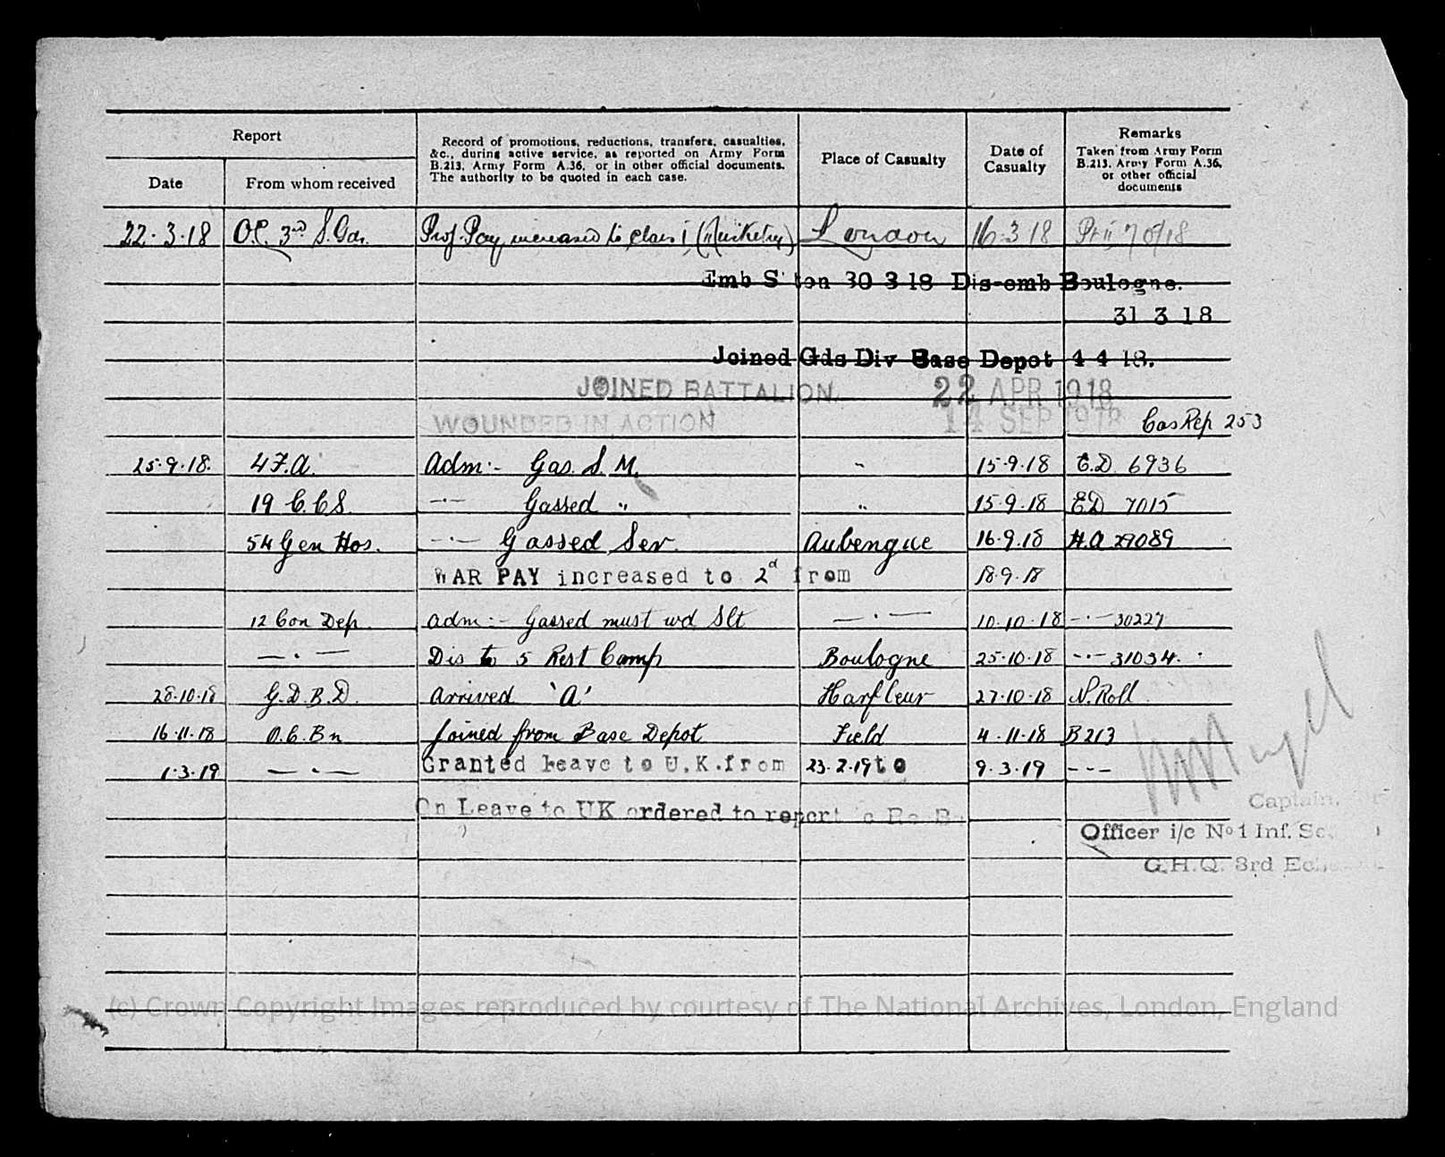 Report
Record of promotions, reductions, transfers, casualties, &c., during active service, as reported on Army Form B.213, Army Form A.36, or in other official documents. The authority to be quoted in each case.
Place of Casualty
Date of Casualty
Remarks
Taken from Army Form B.213, Army Form A.36, or other official documents
Date From whom received
22.3.18 O.C. 3rd S. Gds. Prof. Pay increased to class 1 (Musketry) London 16.3.18 Pt II 70/18
Emb S'ton 30 3 18 Dis-emb Boulogne.
31 3 18
Joined Gds Div Base Depot 4 4 18.
JOINED BATTALION. 22 APR 1918
WOUNDED IN ACTION 14 SEP 1918 Cas Rep 253
25.9.18. 4 F.A. Adm:- Gas. S. M. " 15.9.18 E.D 6936
19 C.C.S. -·- Gassed " " 15.9.18 ED 7015
54 Gen Hos. -·- Gassed Sev. Aubengue 16.9.18 H.A 29089
WAR PAY increased to 2d from 18.9.18
12 Con Dep. adm:- Gassed must wd Slt -·- 10.10.18 -·- 30227
-·- Dis to 5 Rest Camp Boulogne 25.10.18 -·- 31034.
28.10.18 G.D.B.D. Arrived 'A' Harfleur 27.10.18 N. Roll
16.11.18 O.C. Bn Joined from Base Depot Field 4.11.18 B213
1.3.19 -·- Granted leave to U.K. from 23.2.19 to 9.3.19 ---
On Leave to UK ordered to report
Captain.
Officer i/c No 1 Inf. Sec.
G.H.Q. 3rd
(c) Crown Copyright Images reproduced by courtesy of The National Archives, London, England